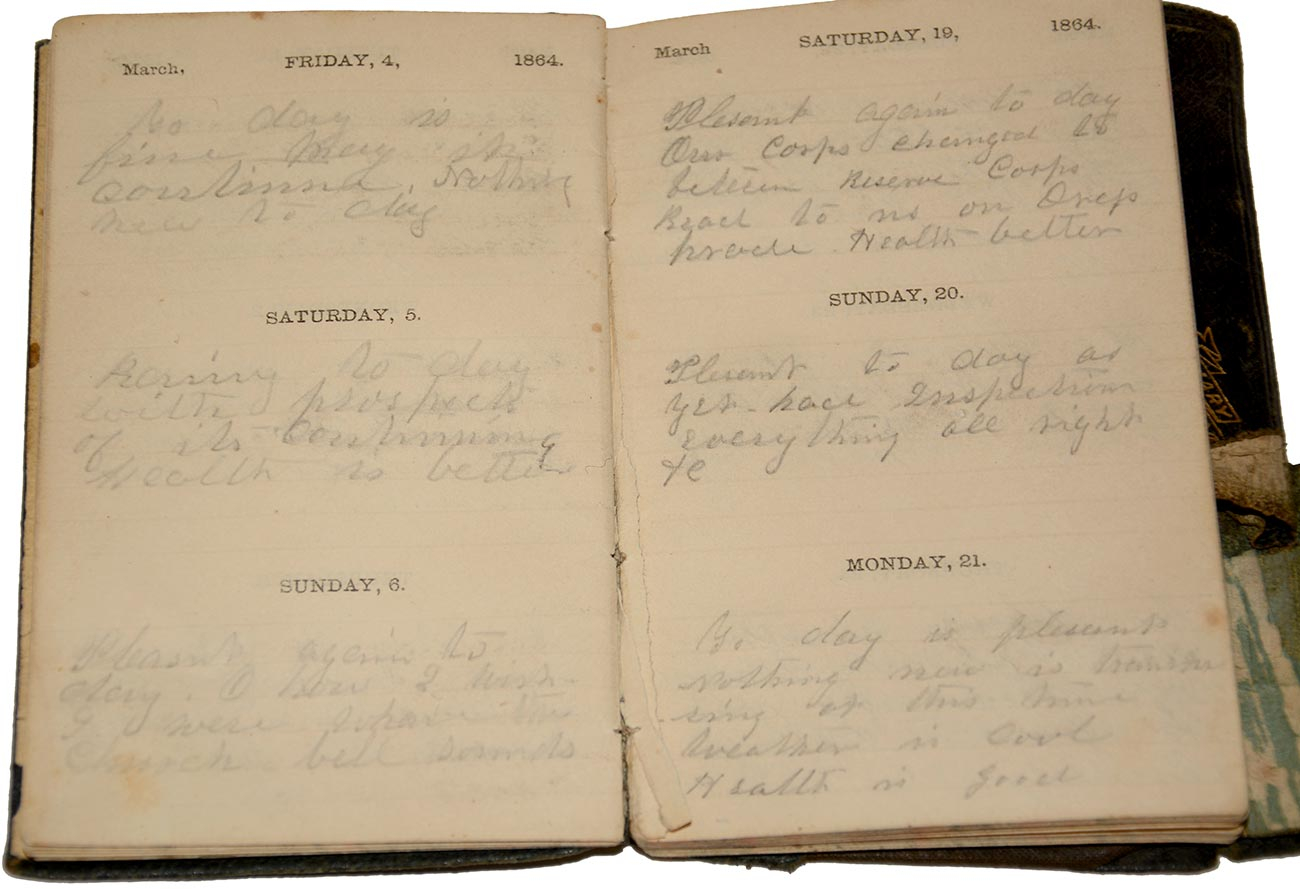 March, FRIDAY, 4, 1864.
To day is
fine May it
continue. Nothing
new to day
SATURDAY, 5.
Raning to day
with prospect
of its continuing
Health is better
SUNDAY, 6.
Pleasnt again to
day. O how I wish
I were whare the
Church bell sounds
March SATURDAY, 19, 1864.
Plesant again to day
Our Corps changed to
Reserve Corps
Read to us on Dress
prade Health better
SUNDAY, 20.
Plesant to day as
yet had Inspection
everything all right
&c
MONDAY, 21.
To day is plesant
nothing new is transpi
ring at this time
Weather is Cool
Health is good
DIARY